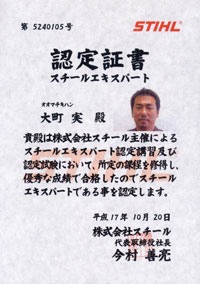 第 5240105号
STIHL
認定証書
スチールエキスパート
オオマチ キハン
大町 実 殿
貴殿は株式会社スチール主催による
スチールエキスパート認定講習及び
認定試験において、所定の課程を修得し、
優秀な成績で合格したのでスチール
エキスパートである事を認定します。
平成 17年 10月 20日
株式会社スチール
代表取締役社長
今村 善亮